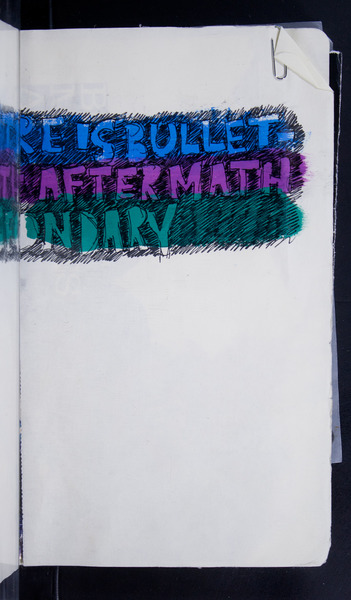 RE IS BULLET-
AFTERMATH
ONDARY